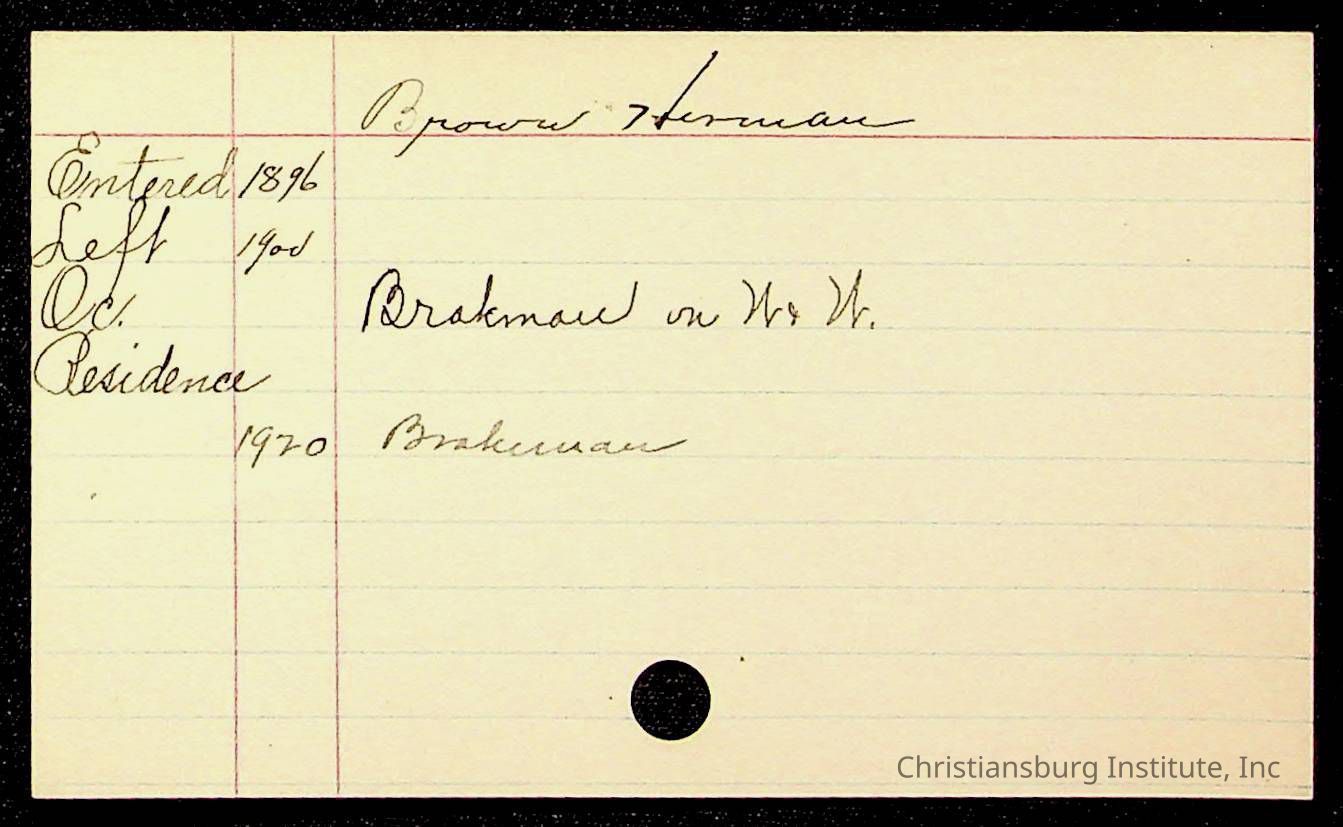 Brown Herman
Entered 1896
Left 1900
Oc. Brakman on N & W.
Residence
1920 Brakeman
Christiansburg Institute, Inc